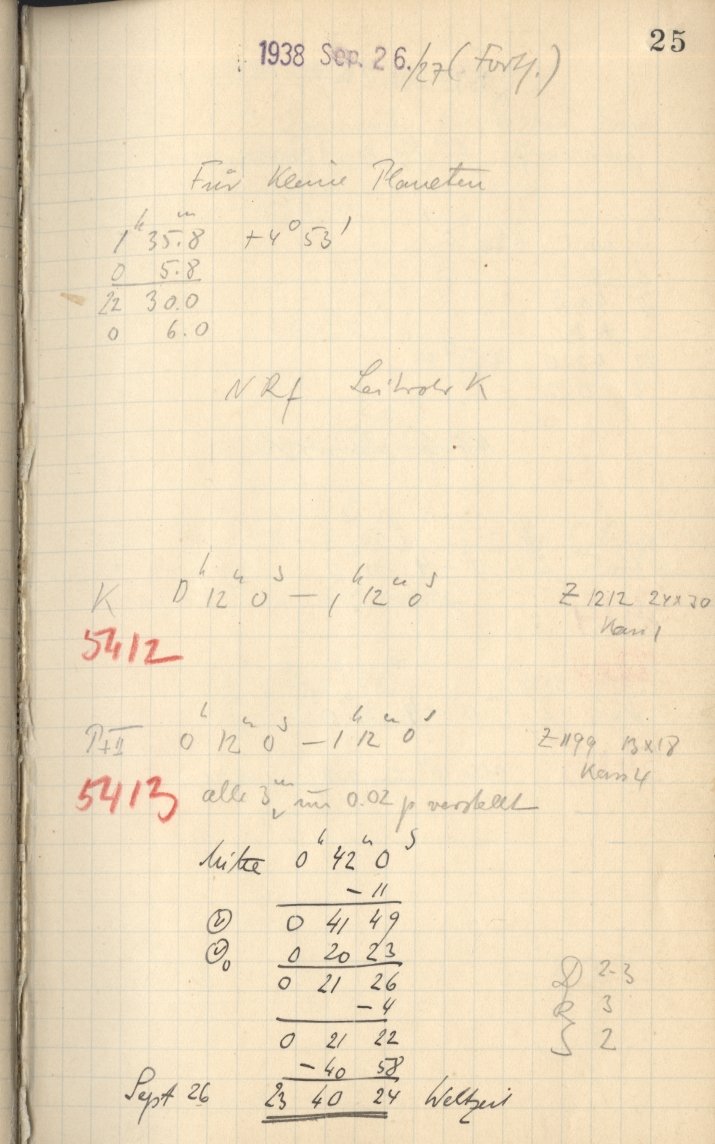 25
1938 Sep. 26./27 (Forts.)
Für Kleine Planeten
1ʰ 35ᵐ.8 +4° 53'
0 5.8
22 30.0
0 6.0
N Rf Leitrohr K
K 0ʰ 12ᵐ 0ˢ — 1ʰ 12ᵐ 0ˢ Z 1212 24×30
Kass 1
5412
0ʰ 12ᵐ 0ˢ — 1ʰ 12ᵐ 0ˢ Z 1199 13×18
Kass 4
5413 alle 3ᵐ um 0.02 p verstellt
Mitte 0ʰ 42ᵐ 0ˢ
- 11
0 41 49
0 20 23
0 21 26
D 2-3
- 4
R 3
0 21 22
S 2
- 40 58
Sept 26 23 40 24 Weltzeit